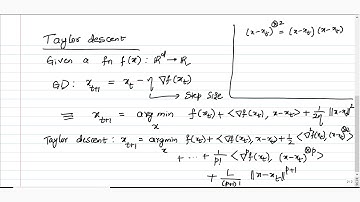 Taylor descent
(x-x_t)^{⊗2} = (x-x_t)(x-x_t)
Given a fn f(x): ℝ^d → ℝ
GD: x_{t+1} = x_t - η ∇f(x_t)
↳ Step Size
≡ x_{t+1} = argmin_x f(x_t) + <∇f(x_t), x-x_t> + 1/2η ||x-x_t||^2
Taylor descent: x_{t+1} = argmin_x f(x_t) + <∇f(x_t), x-x_t> + 1/2 <∇^2f(x_t), (x-x_t)^{⊗2}>
+ ... + 1/p! <∇^p f(x_t), (x-x_t)^{⊗p}>
+ L/(p+1)! ||x-x_t||^{p+1}